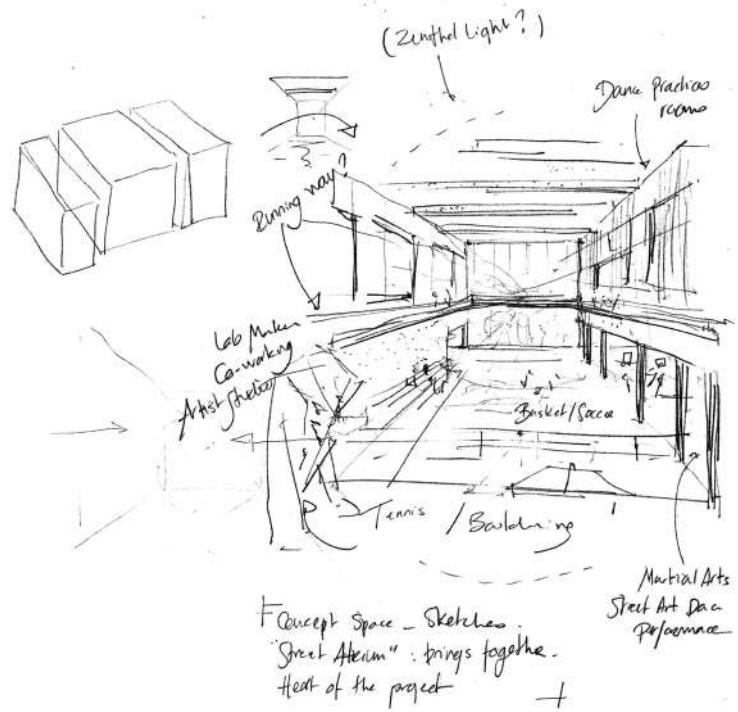 (Zenithal Light?)
Dance Practice
rooms
Running way?
Lab Maker
Co-working
Artist
Basket/Soccer
Tennis / Bouldering
Martial Arts
Street Art Dance
Performance
Concept Space _ Sketches.
"Street Atrium" : brings together.
Heart of the project